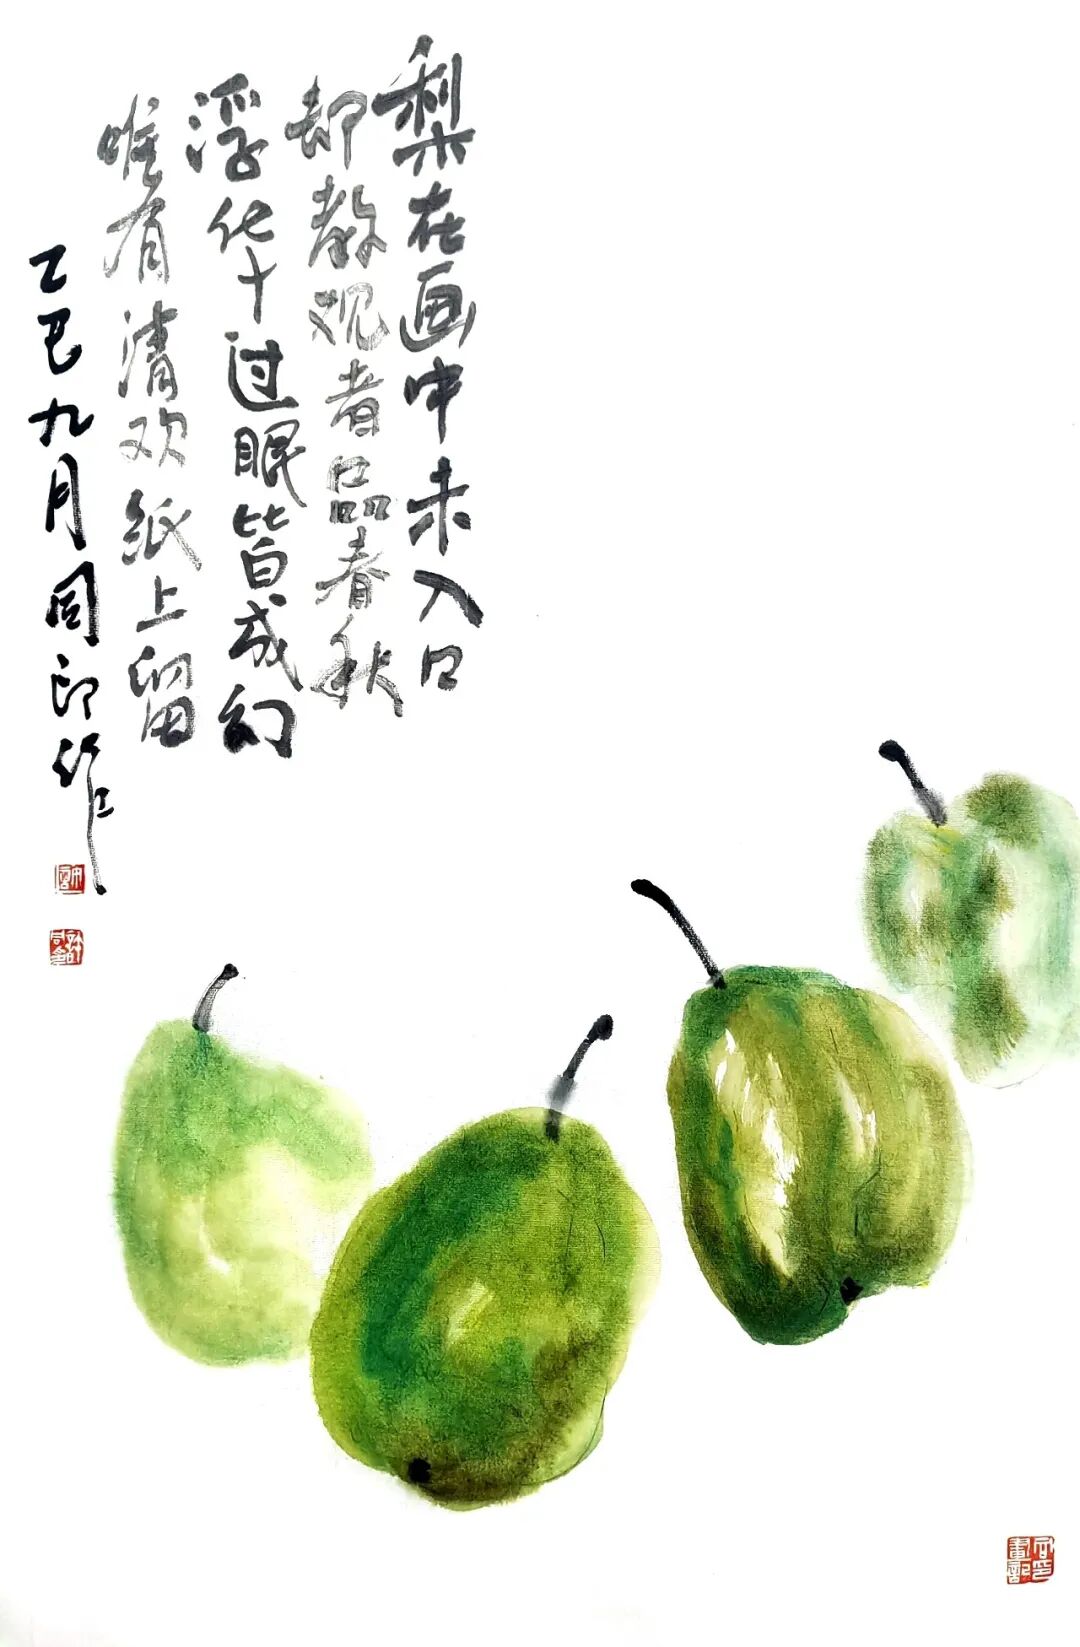 梨在画中未入口
却教观者品春秋
浮华过眼皆成幻
唯有清欢纸上留
乙巳九月同印作